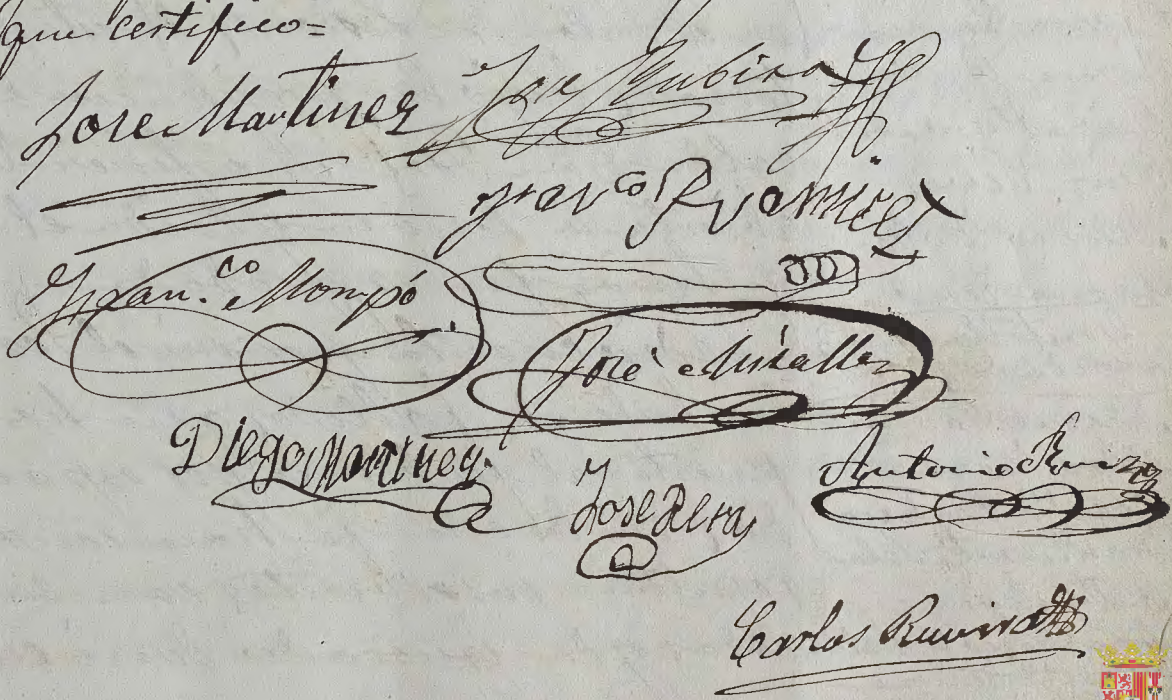 que certifico=
Jose Martinez Jose Rubira
Franco Ramirez
Fran.co Mompó
José Miralles
Diego Martinez
Jose Pera
Antonio Ruiz
Carlos Ruvira